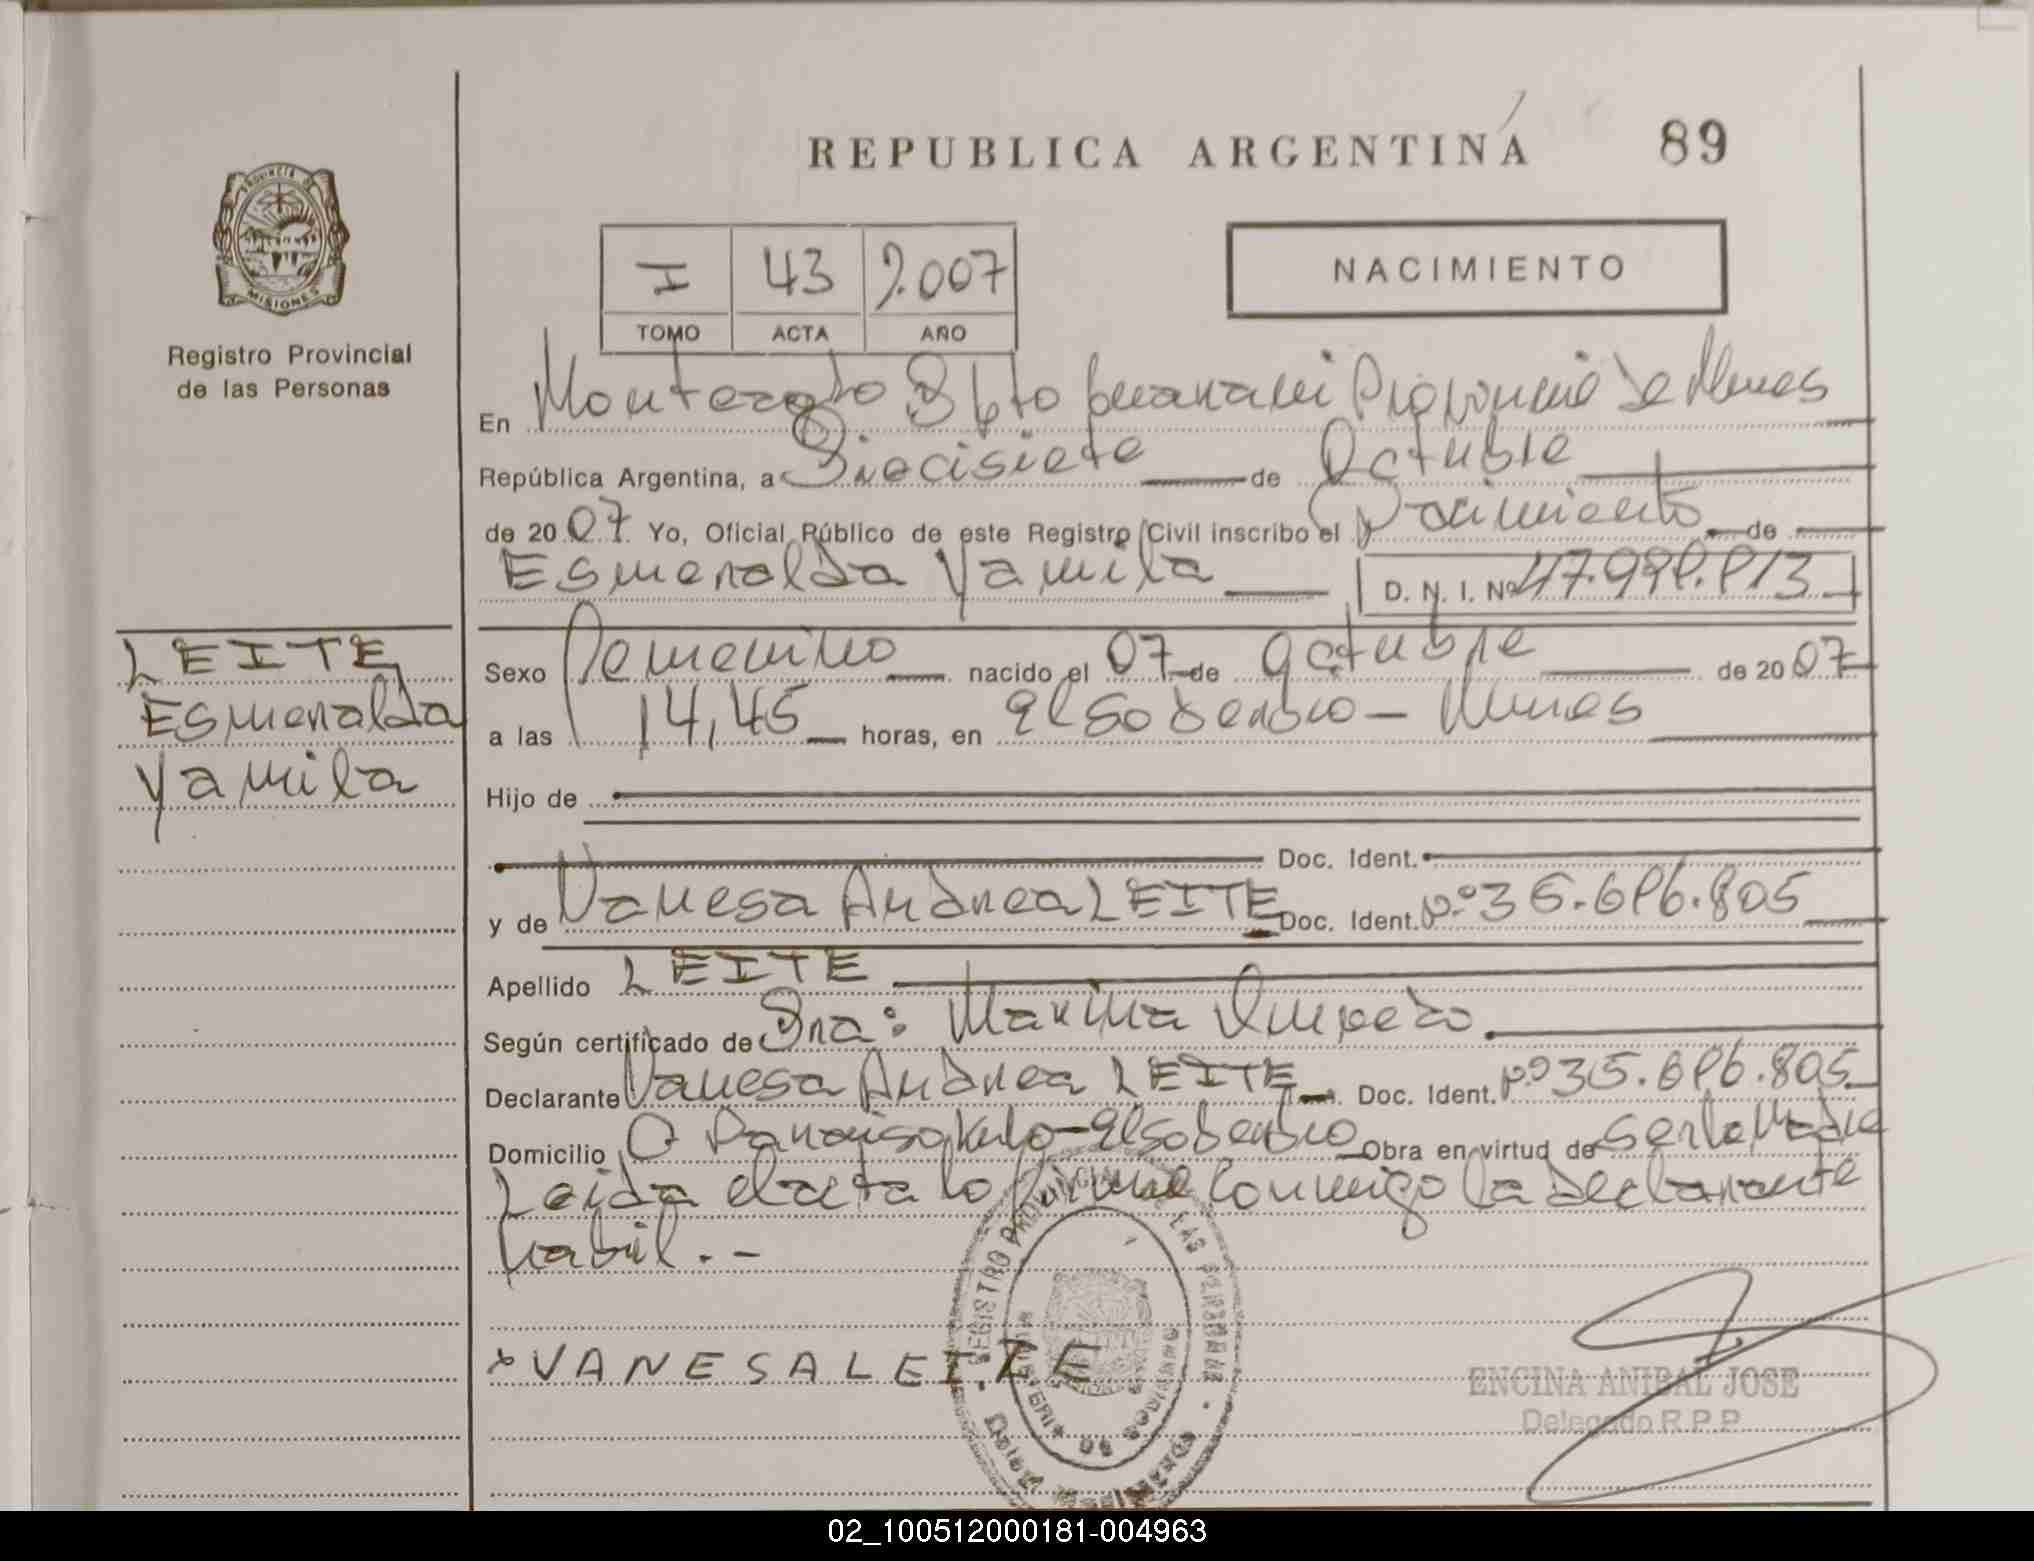 REPUBLICA ARGENTINA 89
PROVINCIA DE
MISIONES
Registro Provincial
de las Personas
I 43 2.007
TOMO ACTA AÑO
NACIMIENTO
En Dpto Guarani Provincia de Mnes
República Argentina, a Diecisiete de Octubre
de 2007 Yo, Oficial Público de este Registro Civil inscribo el Nacimiento de
Esmeralda Yamila D. N. I. Nº
LEITE
Esmeralda
Yamila
Sexo Femenino nacido el 07 de Octubre de 2007
a las 14,45 horas, en El Soberbio - Mnes
Hijo de
Doc. Ident.
y de Vanesa Andrea LEITE Doc. Ident. Nº
Apellido LEITE
Según certificado de Sra: Marina
Declarante Vanesa Andrea LEITE Doc. Ident. Nº
Domicilio El Soberbio Obra en virtud de ser la Madre
Leida el acta lo firma conmigo la declarante
habil. -
x VANESA LEITE
REGISTRO PROVINCIAL DE LAS PERSONAS
ENCINA ANIBAL JOSE
Delegado R.P.P.
02_100512000181-004963